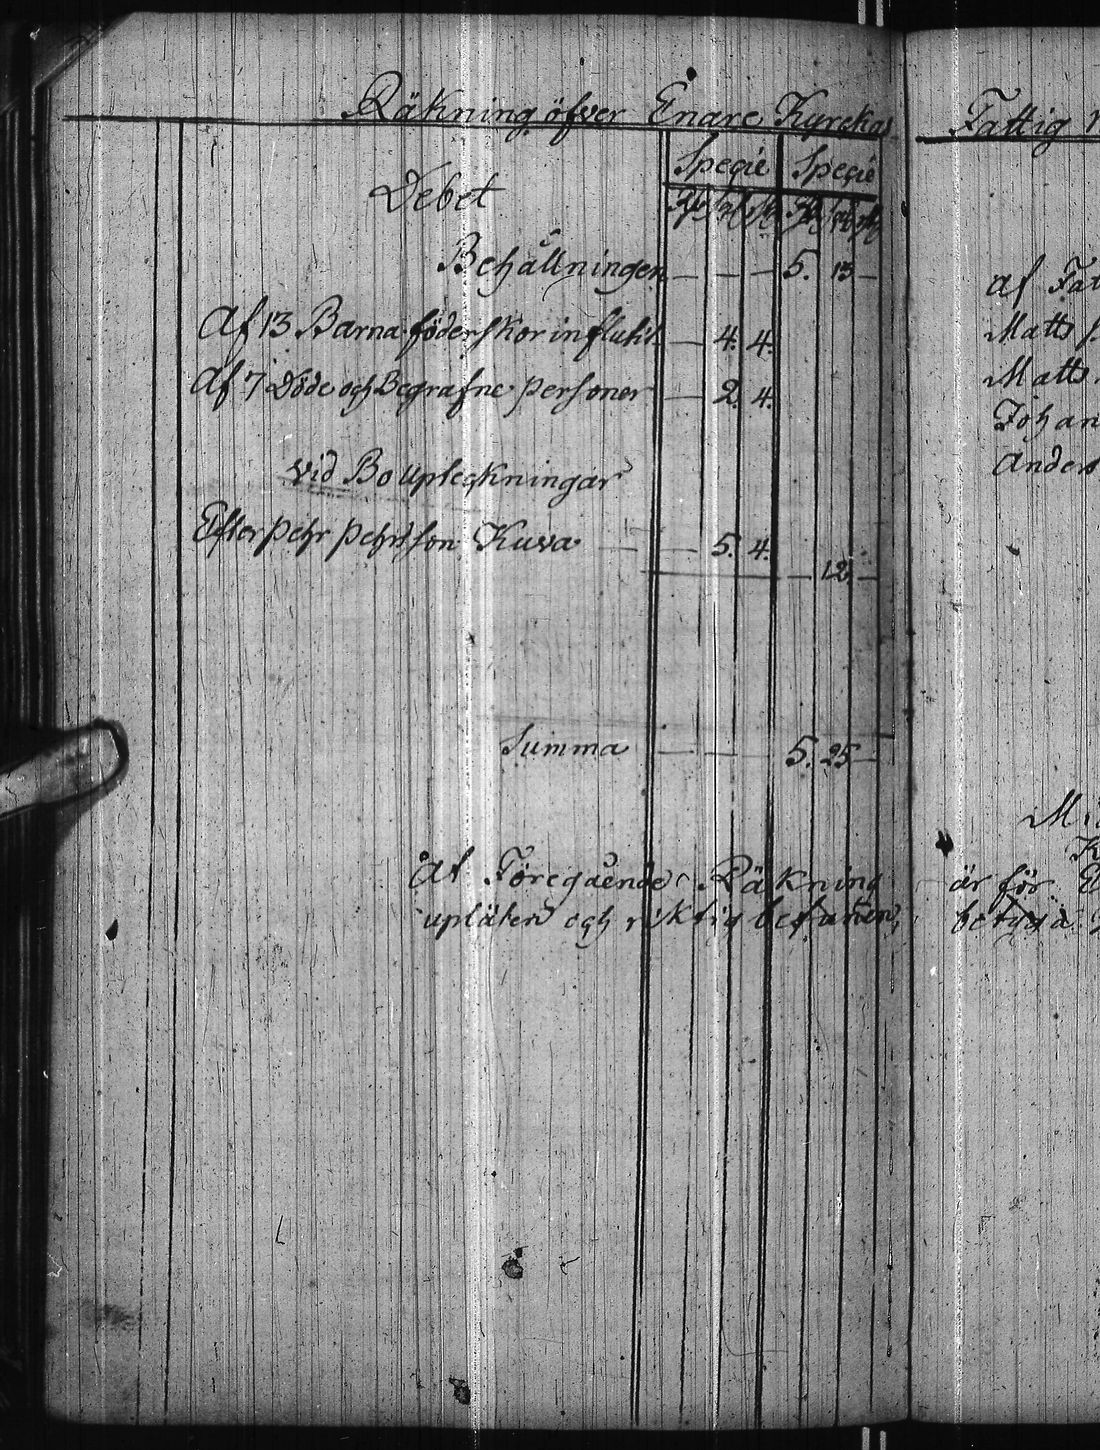 Räkning öfver Enare Kyrckas
Debet
Specie Specie
Behållningen — — — 5. 13 —
Af 13 Barnaföderskor influtit — 4. 4.
Af 7 Döde och Begrafne personer — 2. 4.
vid Boupteckningar
Efter Pehr Pehrsson Kuva — — 5. 4.
— 12. —
Summa — — — 5. 25 —
At Föregående Räkning
upläsen och riktig befunnen,
Fattig
af Fat
Matts
Matts
Johan
Anders
är för
betyga